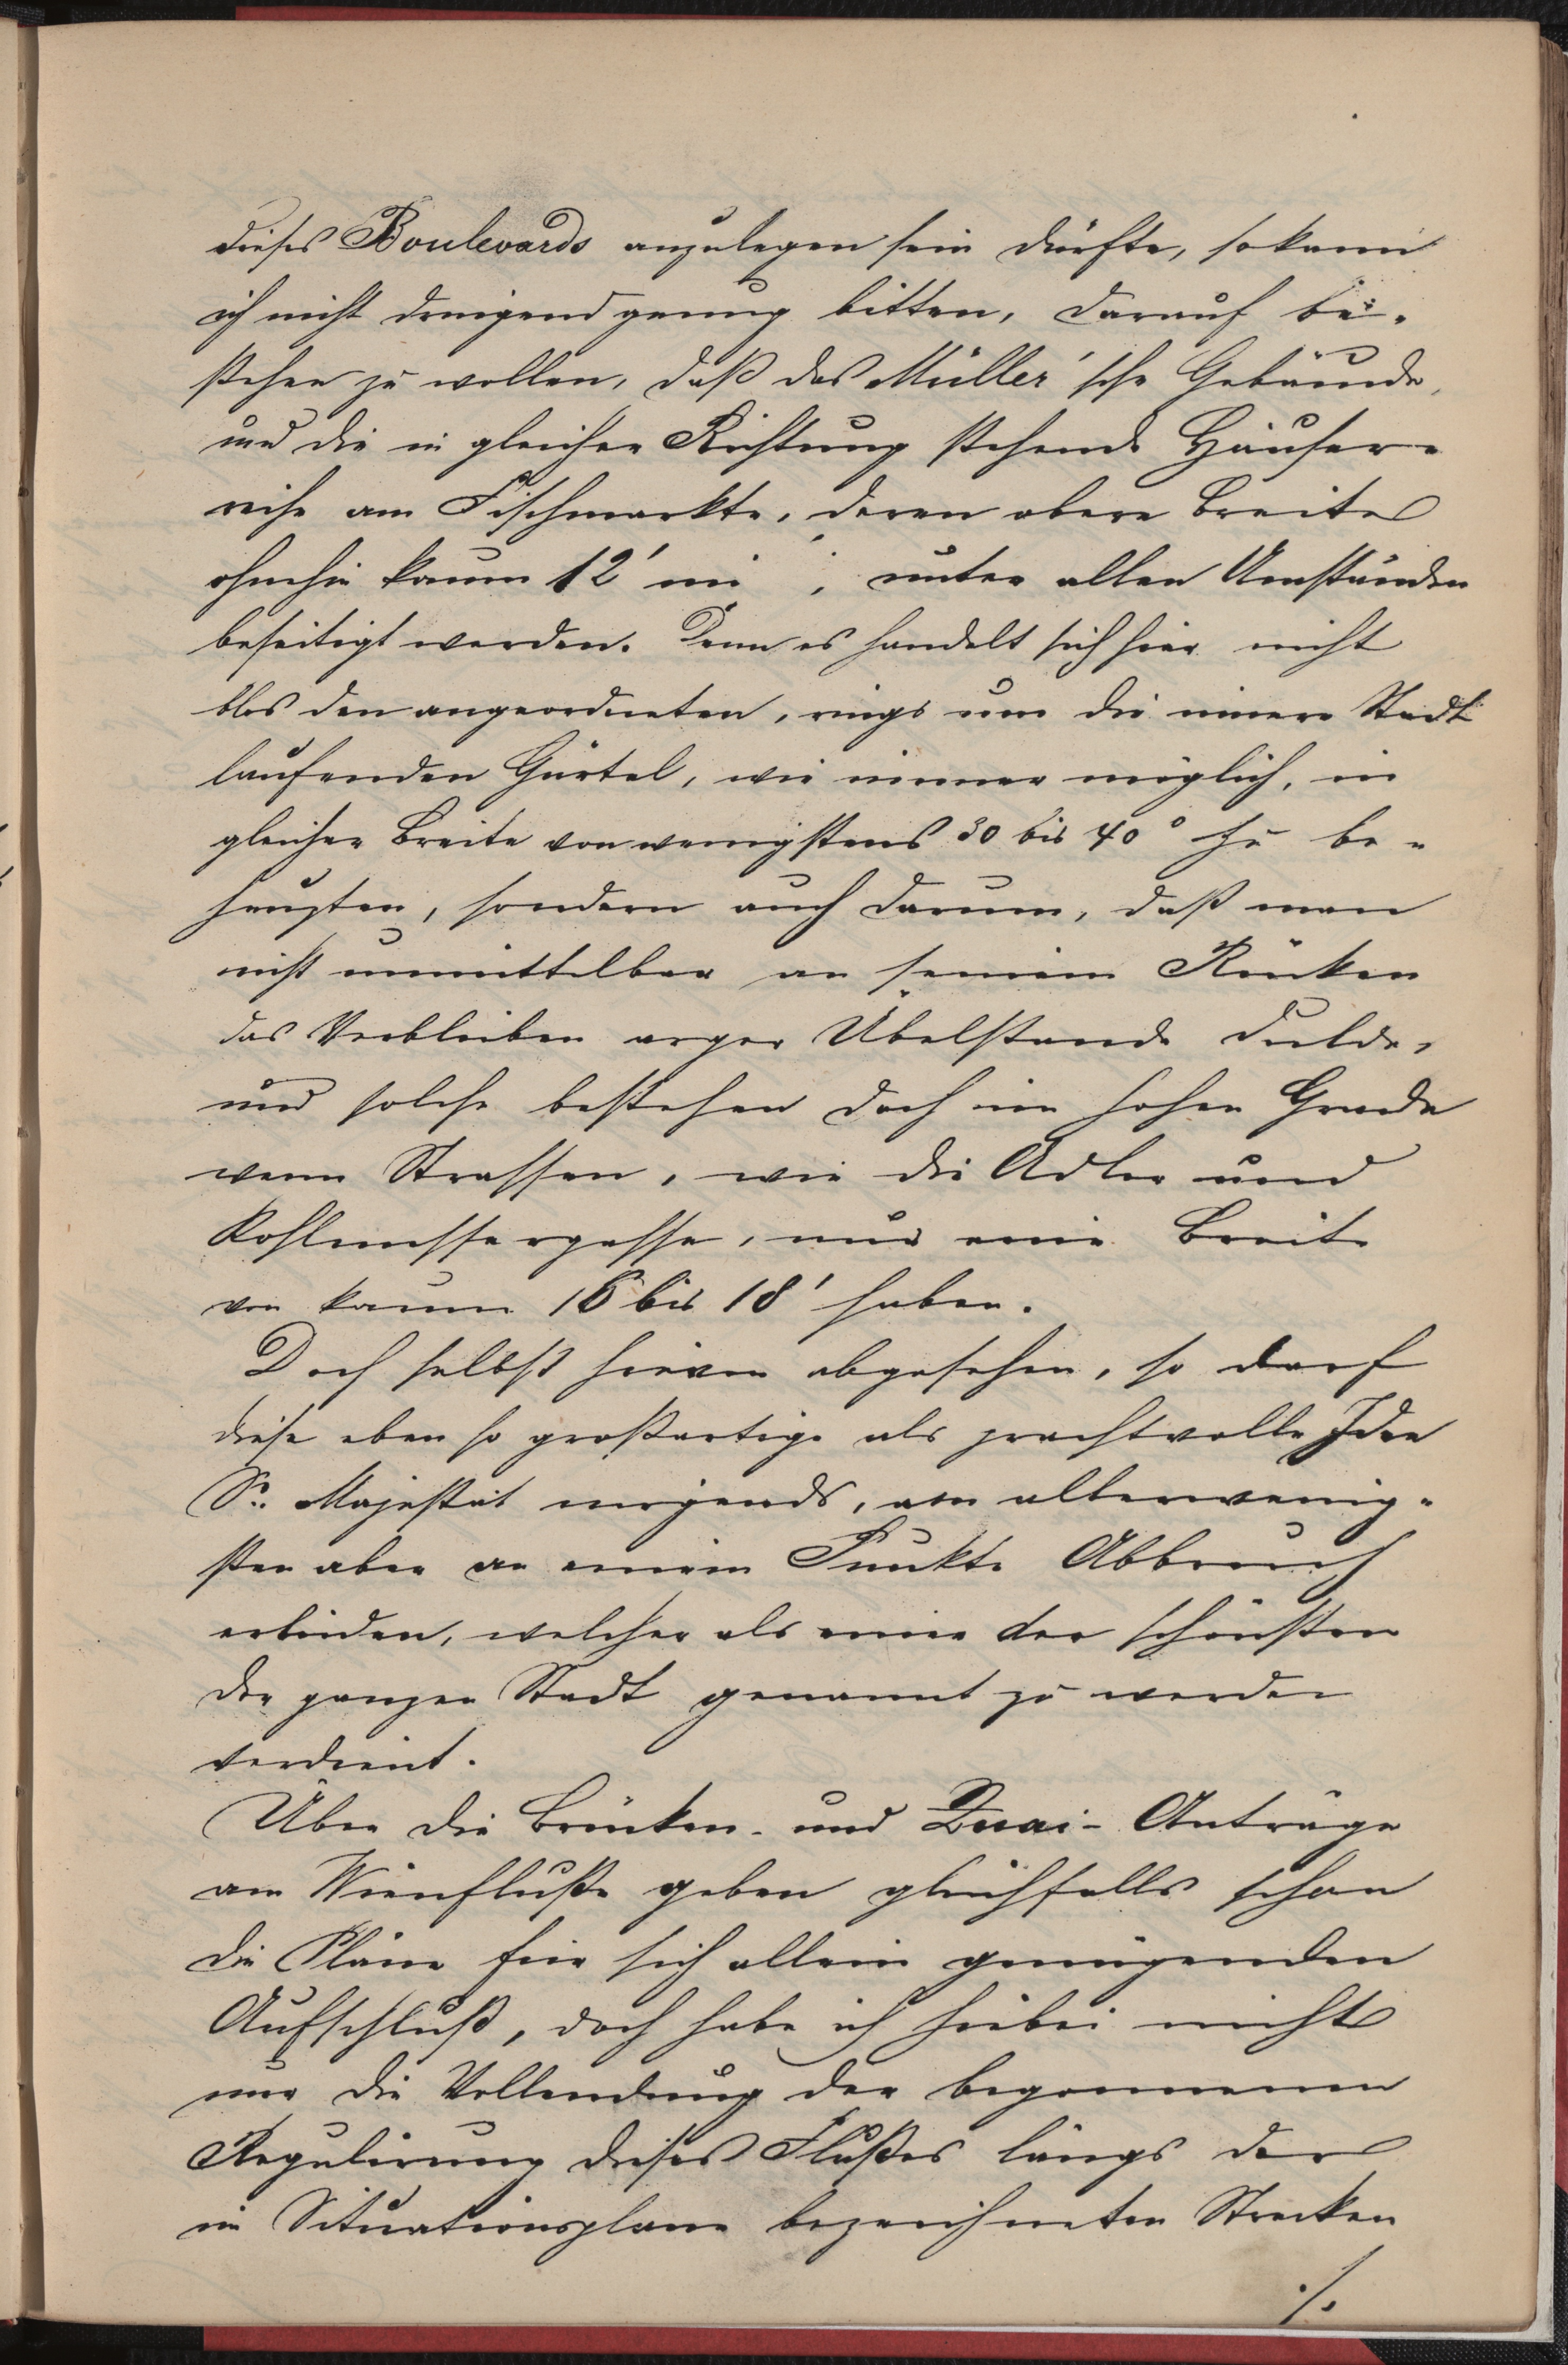 dieses Boulevards anzulegen sein dürfte, so kann
ich nicht dringend genug bitten, darauf be-
stehen zu wollen, daß das Müller'sche Gebäude,
und die in gleicher Richtung stehende Häuser-
reihe am Fischmarkte, deren obere Breite
ohnehin kaum 12' mi , unter allen Umständen
beseitigt werden. Denn es handelt sich hier nicht
blos den angeordneten, rings um die innere Stadt
laufenden Gürtel, wie immer möglich, in
gleicher Breite von wenigstens 30 bis 40° zu be-
haupten, sondern auch darum, daß man
nicht unmittelbar an seinem Rücken
das Verbleiben arger Übelstande dulde,
und solche bestehen doch im hohen Grade
wenn Strassen, wie die Adler und
Kohlmessergasse, nur eine Breite
von kaum 16 bis 18' haben.
Doch selbst hievon abgesehen, so darf
diese eben so großartige als prachtvolle Idee
Sr. Majestät nirgends, am allerwenig-
sten aber an einem Punkte Abbruch
erleiden, welcher als einer der schönsten
der ganzen Stadt genannt zu werden
verdient.
Über die Brücken- und Quai-Anträge
am Wienfluße geben gleichfalls schon
die Pläne für sich allein genügenden
Aufschluß, doch habe ich hiebei nicht
nur die Vollendung der begonnenen
Regulirung dieses Flußes längs der
im Situationsplane bezeichneten Strecken
./.